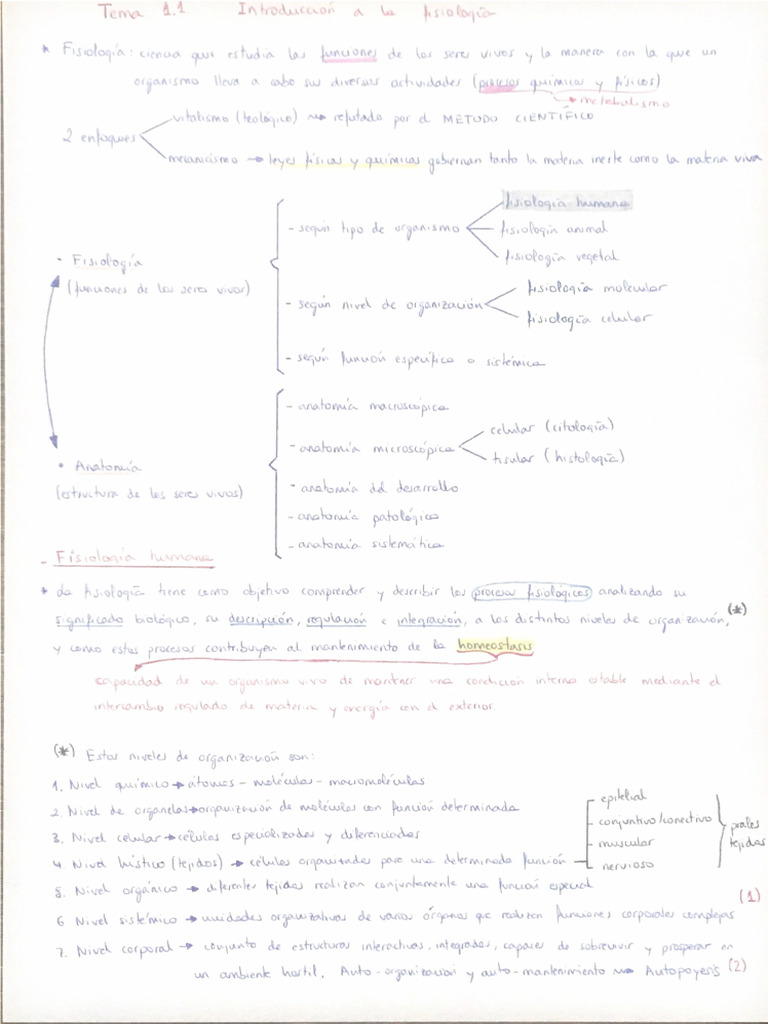 Tema 1.1 Introducción a la fisiología
* Fisiología: ciencia que estudia las funciones de los seres vivos y la manera con la que un
organismo lleva a cabo sus diversas actividades (procesos químicos y físicos)
→ metabolismo
2 enfoques
vitalismo (teológico) → refutado por el MÉTODO CIENTÍFICO
mecanicismo → leyes físicas y químicas gobiernan tanto la materia inerte como la materia viva
- Fisiología
(funciones de los seres vivos)
- según tipo de organismo
fisiología humana
fisiología animal
fisiología vegetal
- según nivel de organización
fisiología molecular
fisiología celular
- según función específica o sistémica
• Anatomía
(estructura de los seres vivos)
- anatomía macroscópica
- anatomía microscópica
celular (citología)
tisular (histología)
- anatomía del desarrollo
- anatomía patológica
- anatomía sistemática
- Fisiología humana
* La fisiología tiene como objetivo comprender y describir los procesos fisiológicos analizando su
significado biológico, su descripción, regulación e integración, a los distintos niveles de organización, (*)
y como estos procesos contribuyen al mantenimiento de la homeostasis
capacidad de un organismo vivo de mantener una condición interna estable mediante el
intercambio regulado de materia y energía con el exterior.
(*) Estos niveles de organización son:
1. Nivel químico → átomos - moléculas - macromoléculas
2. Nivel de organelas → organización de moléculas con función determinada
3. Nivel celular → células especializadas y diferenciadas
4. Nivel hístico (tejidos) → células organizadas para una determinada función
- epitelial
- conjuntivo/conectivo
- muscular
- nervioso
prales
tejidos
5. Nivel orgánico → diferentes tejidos realizan conjuntamente una función especial
6 Nivel sistémico → unidades organizativas de varios órganos que realizan funciones corporales complejas (1)
7. Nivel corporal → conjunto de estructuras interactivas, integradas, capaces de sobrevivir y prosperar en
un ambiente hostil. Auto-organización y auto-mantenimiento → Autopoyesis (2)